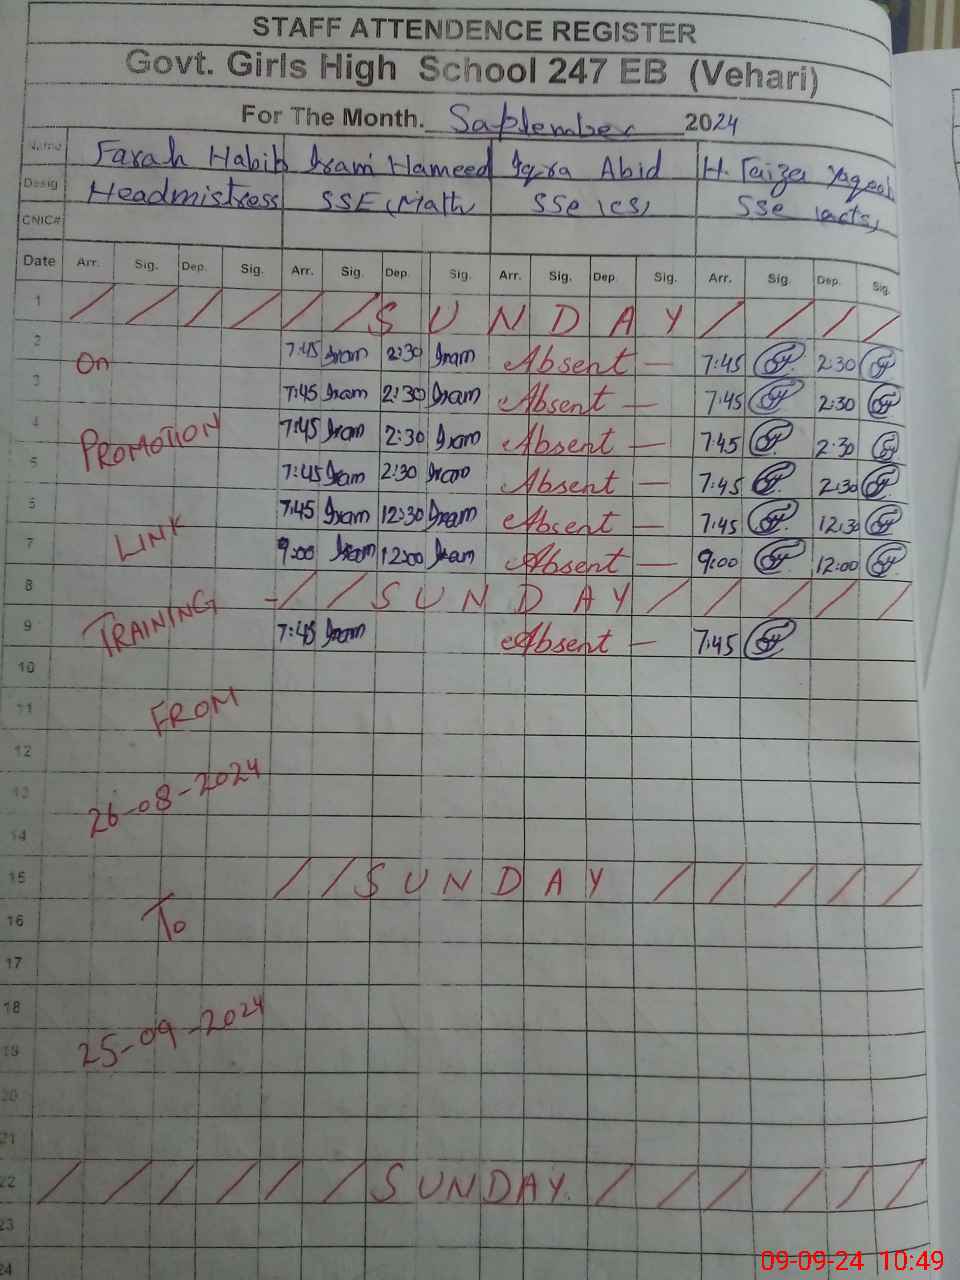 STAFF ATTENDENCE REGISTER
Govt. Girls High School 247 EB (Vehari)
For The Month. Saptember 2024
Name Farah Habib Iram Hameed Iqra Abid H. Faiza Yaqoob
Desig Headmistress SSE (Math) SSe (CS) SSe (arts)
CNIC#
Date Arr. Sig. Dep. Sig. Arr. Sig. Dep. Sig. Arr. Sig. Dep. Sig. Arr. Sig. Dep. Sig.
1 / / / / / / S U N D A Y / / / /
2 On 7:45 Iram 2:30 Iram Absent — 7:45 2:30
3 7:45 Iram 2:30 Iram Absent — 7:45 2:30
4 PROMOTION 7:45 Iram 2:30 Iram Absent — 7:45 2:30
5 7:45 Iram 2:30 Iram Absent — 7:45 2:30
6 LINK 7:45 Iram 12:30 Iram Absent — 7:45 12:30
7 9:00 Iram 12:00 Iram Absent — 9:00 12:00
8 / / S U N D A Y / / / / /
9 TRAINING 7:45 Iram Absent — 7:45
10
11 FROM
12
13 26-08-2024
14
15 / / S U N D A Y / / / / /
16 To
17
18
19 25-09-2024
20
21
22 / / / / / / SUNDAY. / / / / / /
23
24
09-09-24 10:49